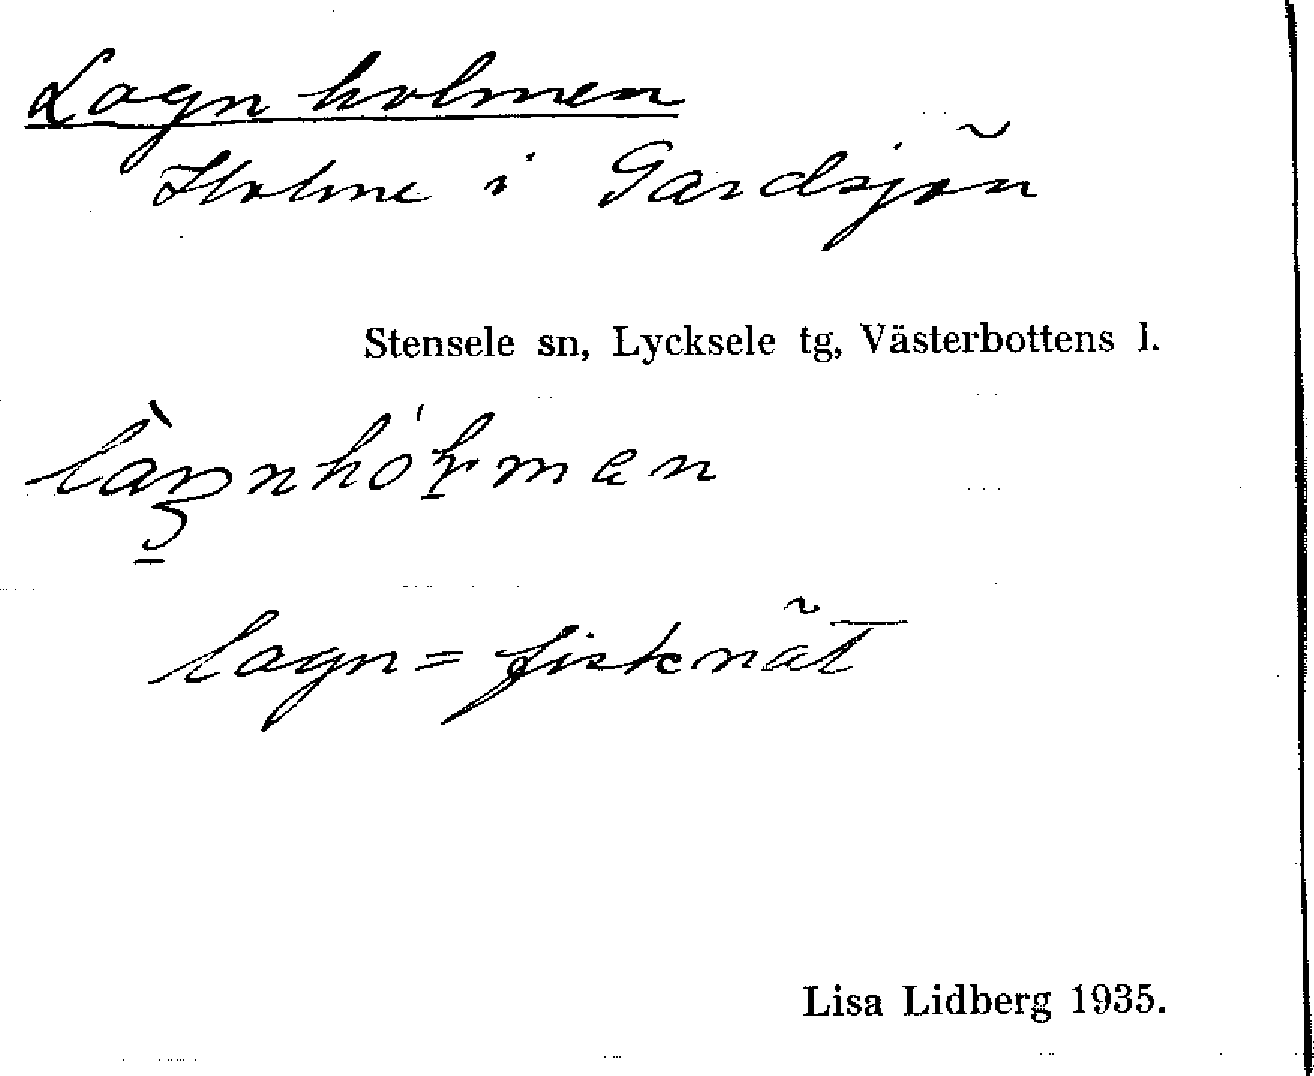 Lagnholmen
Holme i Gardsjön
Stensele sn, Lycksele tg, Västerbottens l.
lagn = fisknät
Lisa Lidberg 1935.